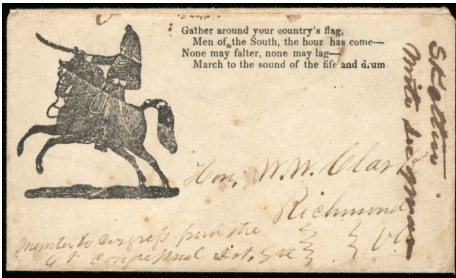 Gather around your country's flag,
Men of the South, the hour has come—
None may falter, none may lag—
March to the sound of the fife and drum
Hon. W. W. Clark
Richmond
Va
Member to Congress from the
Congressional Dist. Ga